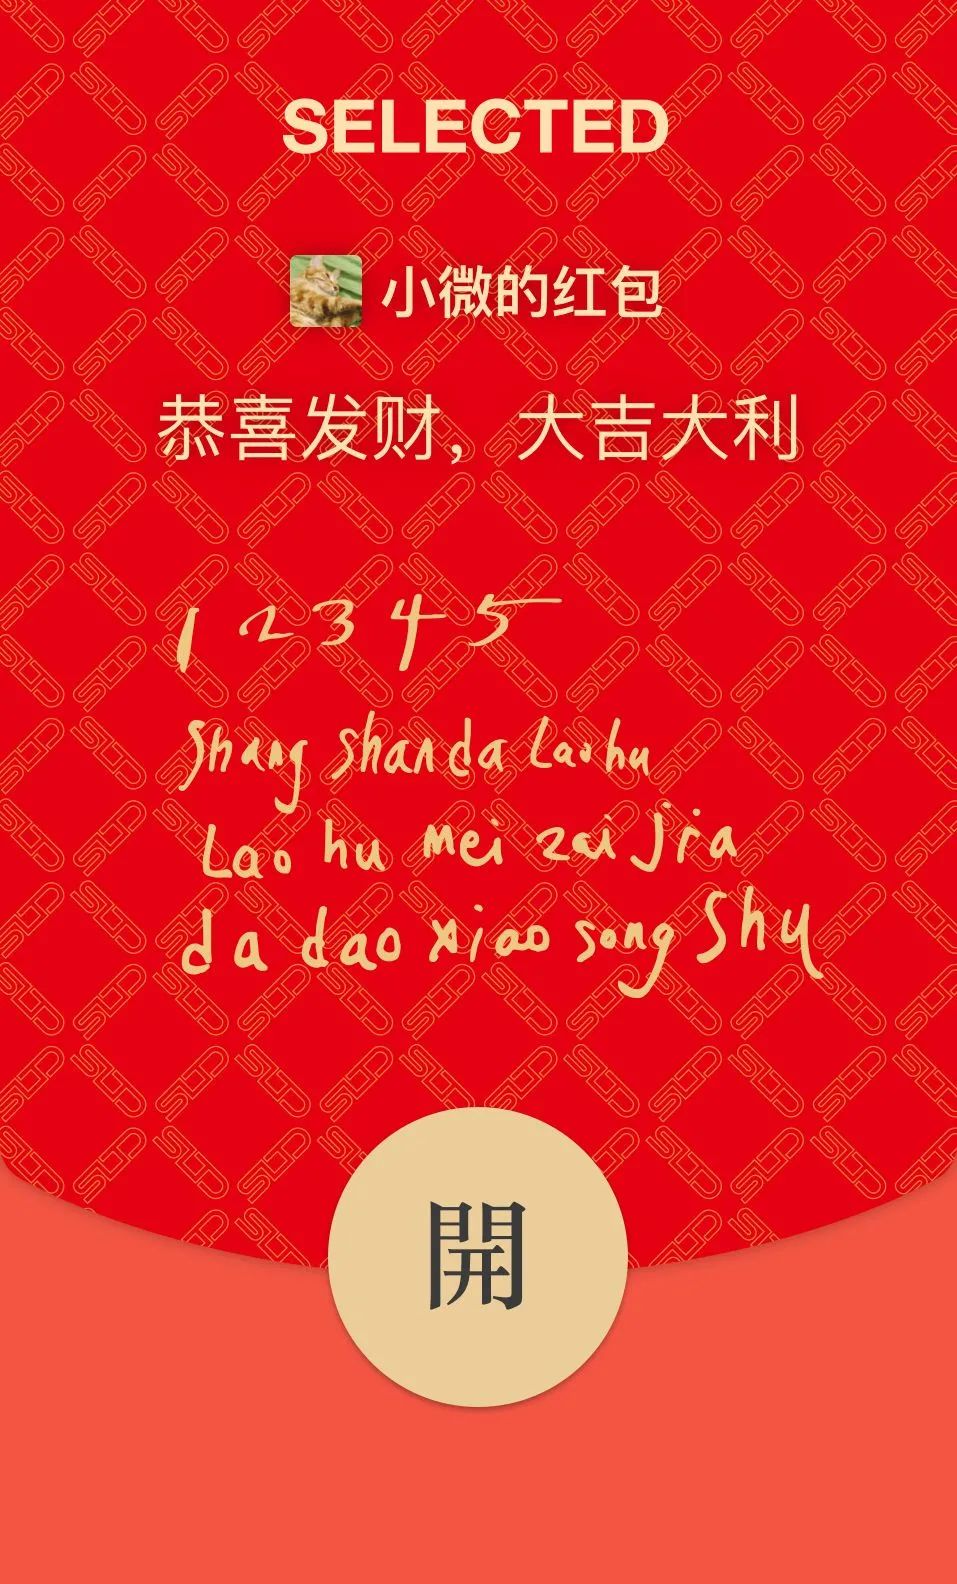 SELECTED
小微的红包
恭喜发财，大吉大利
1 2 3 4 5
Shang shan da Lao hu
Lao hu mei zai Jia
da dao xiao song Shu
開